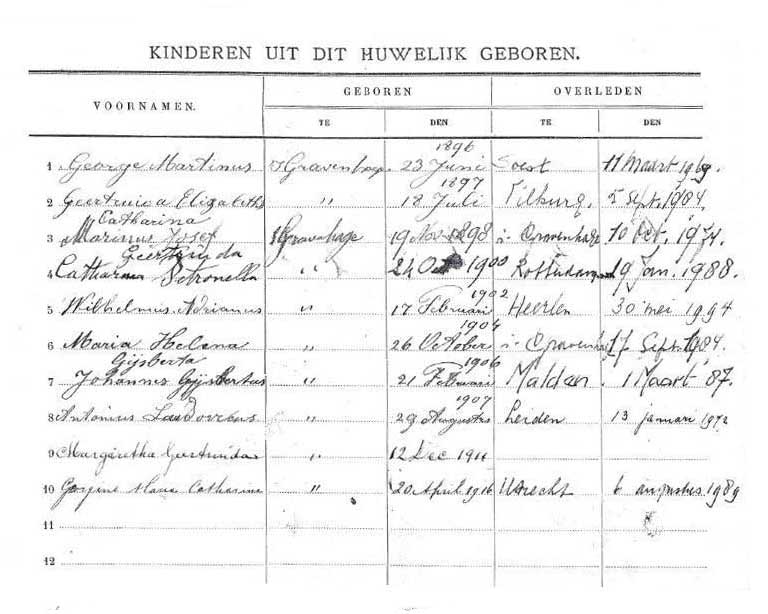 KINDEREN UIT DIT HUWELIJK GEBOREN.
VOORNAMEN. GEBOREN OVERLEDEN
TE DEN TE DEN
1896
1 George Martinus 's Gravenhage 23 Juni Soest 11 Maart 1969.
1897
2 Geertruida Elizabeth " 18 Juli Tilburg. 5 Sept. 1984.
Catharina
3 Marinus Josef 's Gravenhage 19 Nov 1898 's-Gravenhage 10 Oct. 1974.
Geertruida
4 Catharina Petronella " 24 Oct 1900 Rotterdam 19 Jan. 1988.
1902
5 Wilhelmus Adrianus " 17 Februari Heerlen 30 mei 1994
1904
6 Maria Helena " 26 October 's-Gravenhage 17 Sept. 1984.
Gijsberta 1906
7 Johannes Gijsbertus " 21 Februari Malden. 1 Maart '87.
1907
8 Antonius Ludovicus " 29 Augustus Leiden 13 januari 1972
9 Margaretha Geertruida " 12 Dec 1911
10 Maria Catharina " 20 April 1916 Utrecht 6 augustus 1989
11
12